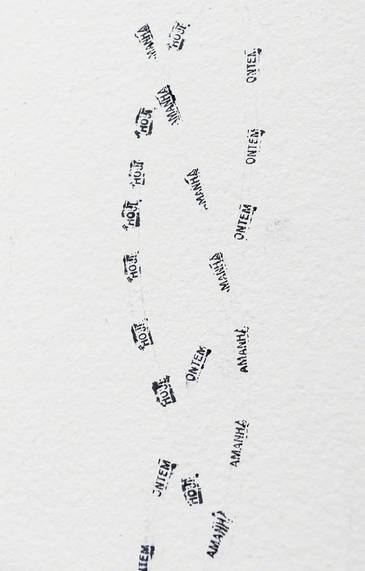 MANHÃ
HOJE
ONTEM
MANHÃ
HOJE
ONTEM
HOJE
MANHÃ
HOJE
ONTEM
HOJE
MANHÃ
HOJE
AMANHÃ
ONTEM
HOJE
AMANHÃ
ONTEM
HOJE
AMANHÃ
TEM